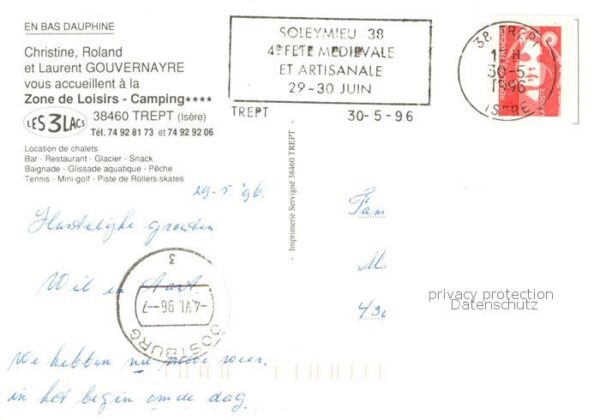 EN BAS DAUPHINE
Christine, Roland
et Laurent GOUVERNAYRE
vous accueillent à la
Zone de Loisirs - Camping★★★★
LES 3 LACS 38460 TREPT (Isère)
Tél. 74 92 81 73 et 74 92 92 06
Location de chalets
Bar - Restaurant - Glacier - Snack
Baignade - Glissade aquatique - Pêche
Tennis - Mini-golf - Piste de Rollers skates
SOLEYMIEU 38
4e FETE MEDIEVALE
ET ARTISANALE
29-30 JUIN
TREPT 30-5-96
38 TREPT
30-5
1996
ISERE
Imprimerie Servigné 38460 TREPT
29.5.'96.
Hartelijke groeten
Wil en Aart.
3
-4.VI.96-7
OOSTBURG
We hebben nu mooi weer.
in het begin om de dag.
Fam
M.
privacy protection
Datenschutz